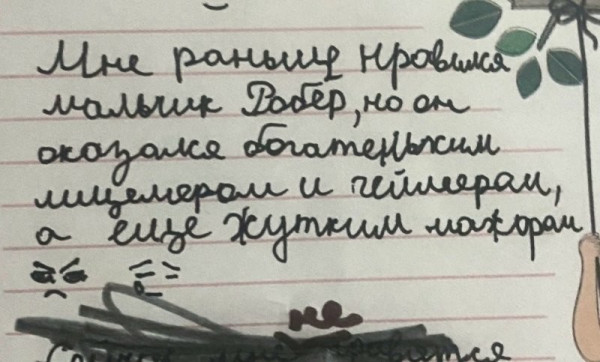 Мне раньше нравился
мальчик Робер, но он
оказался богатеньким
лицемером и геймером,
а еще жутким мажорам
не